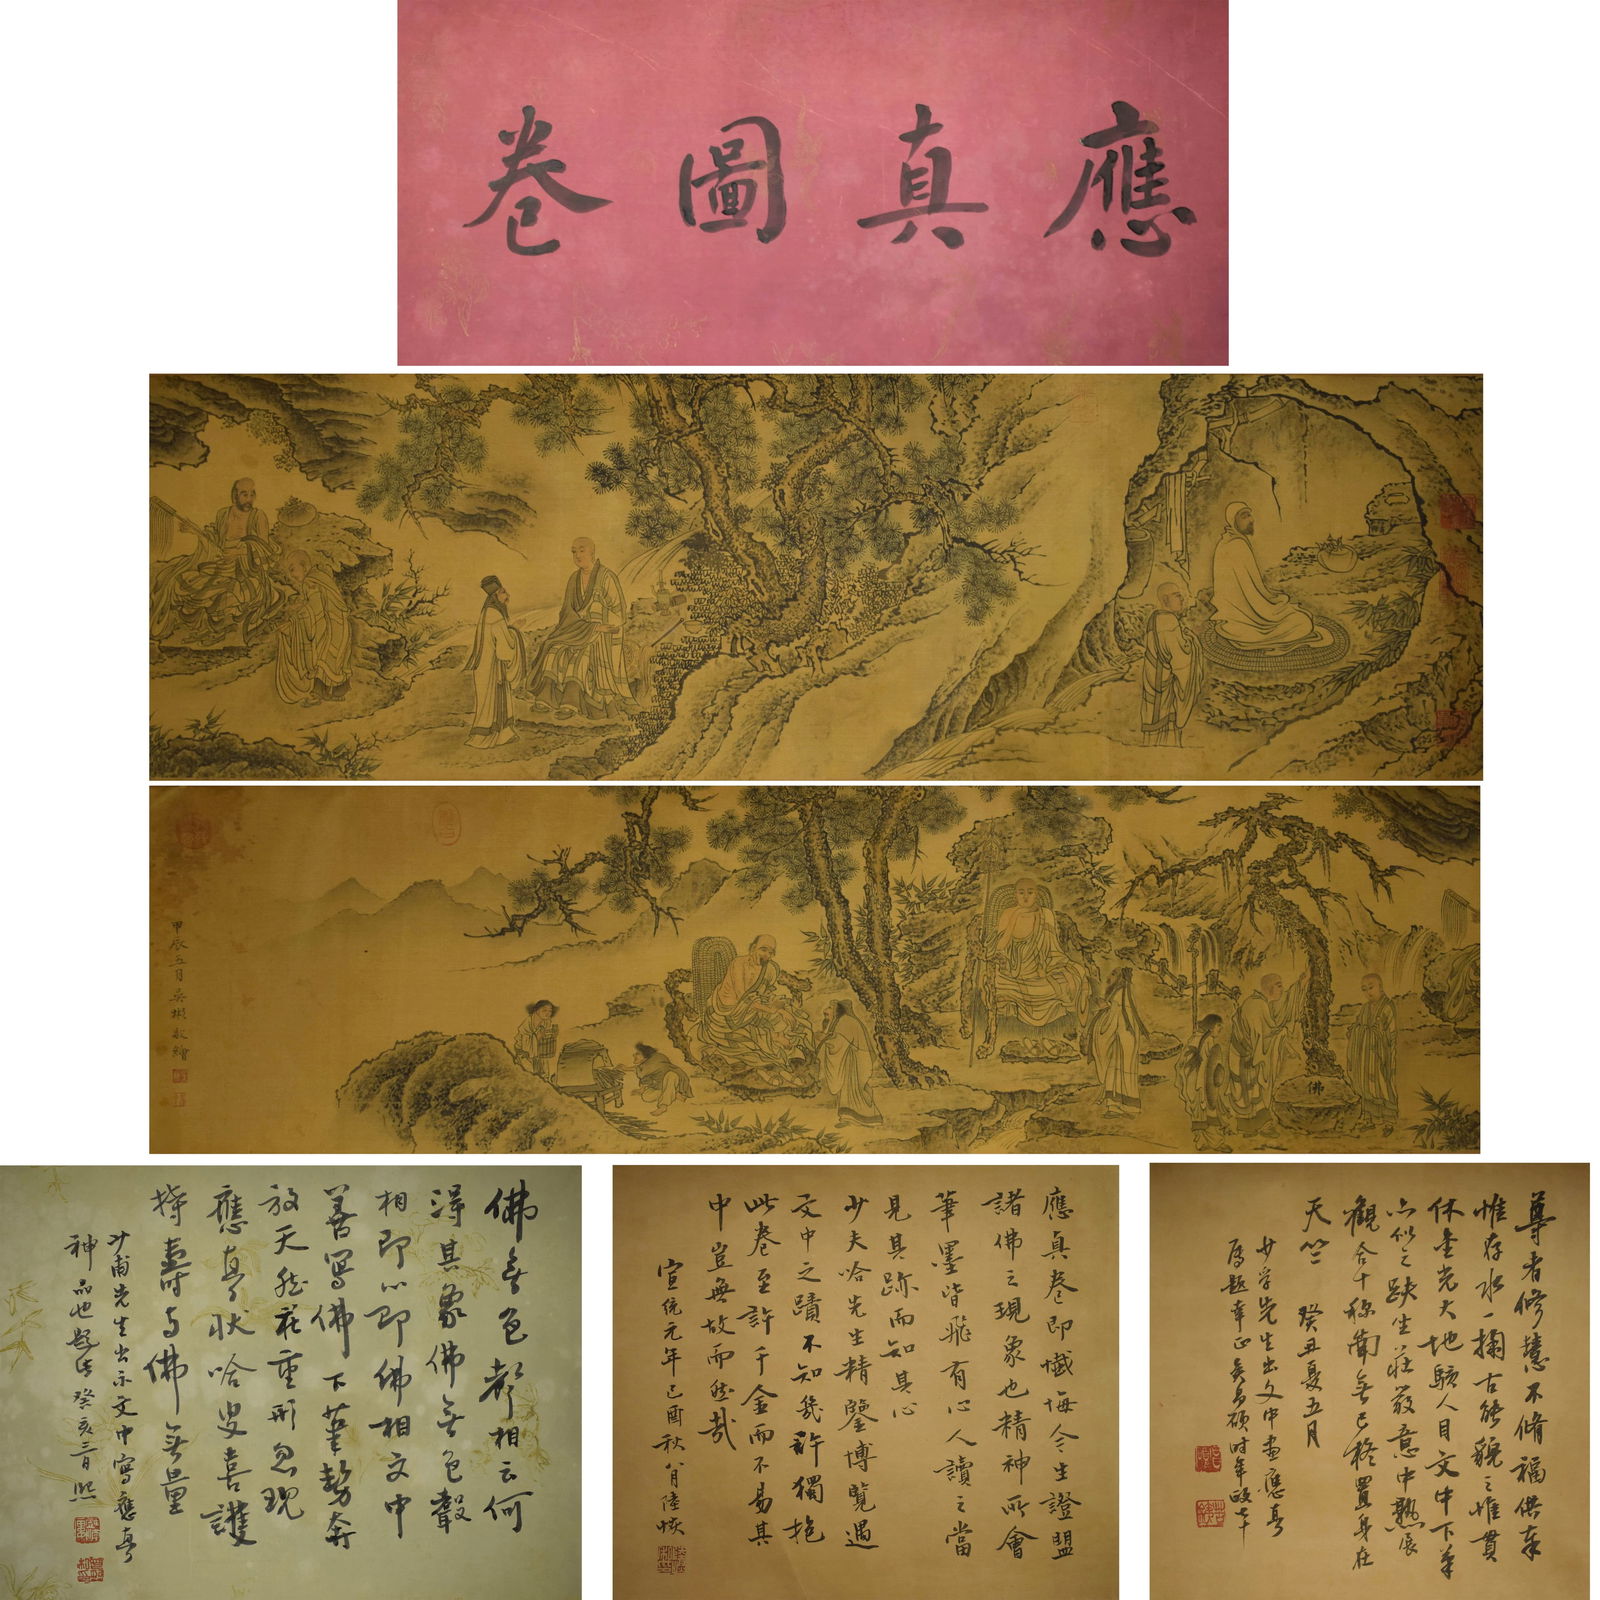 應真圖卷
佛
甲辰五月吳彬敬繪
尊者修慧不修福供奉
惟存水一掬古能貌之惟貫
休金光大地駭人目文中下筆
亦似之趺坐莊嚴意中熟展
觀合十稱南無已將置身在
天竺 癸丑夏五月
少孚先生出文中畫應真
屬題幸正吳昌碩時年政七十
應真卷即懺悔今生證盟
諸佛之現象也精神所會
筆墨皆飛有心人讀之當
見其跡而知其心
少夫哈先生精鑒博覽遇
文中之蹟不知幾許獨抱
此卷至許千金而不易其
中豈無故而然哉
宣統元年己酉秋八月陸恢
佛無色聲相云何
得其象佛無色聲
相即心即佛相文中
善寫佛下筆勢奔
放天然莊重形忽現
應真狀哈叟喜護
持壽與佛無量
少甫先生出示文中寫應真
神品也題字癸亥二月熙